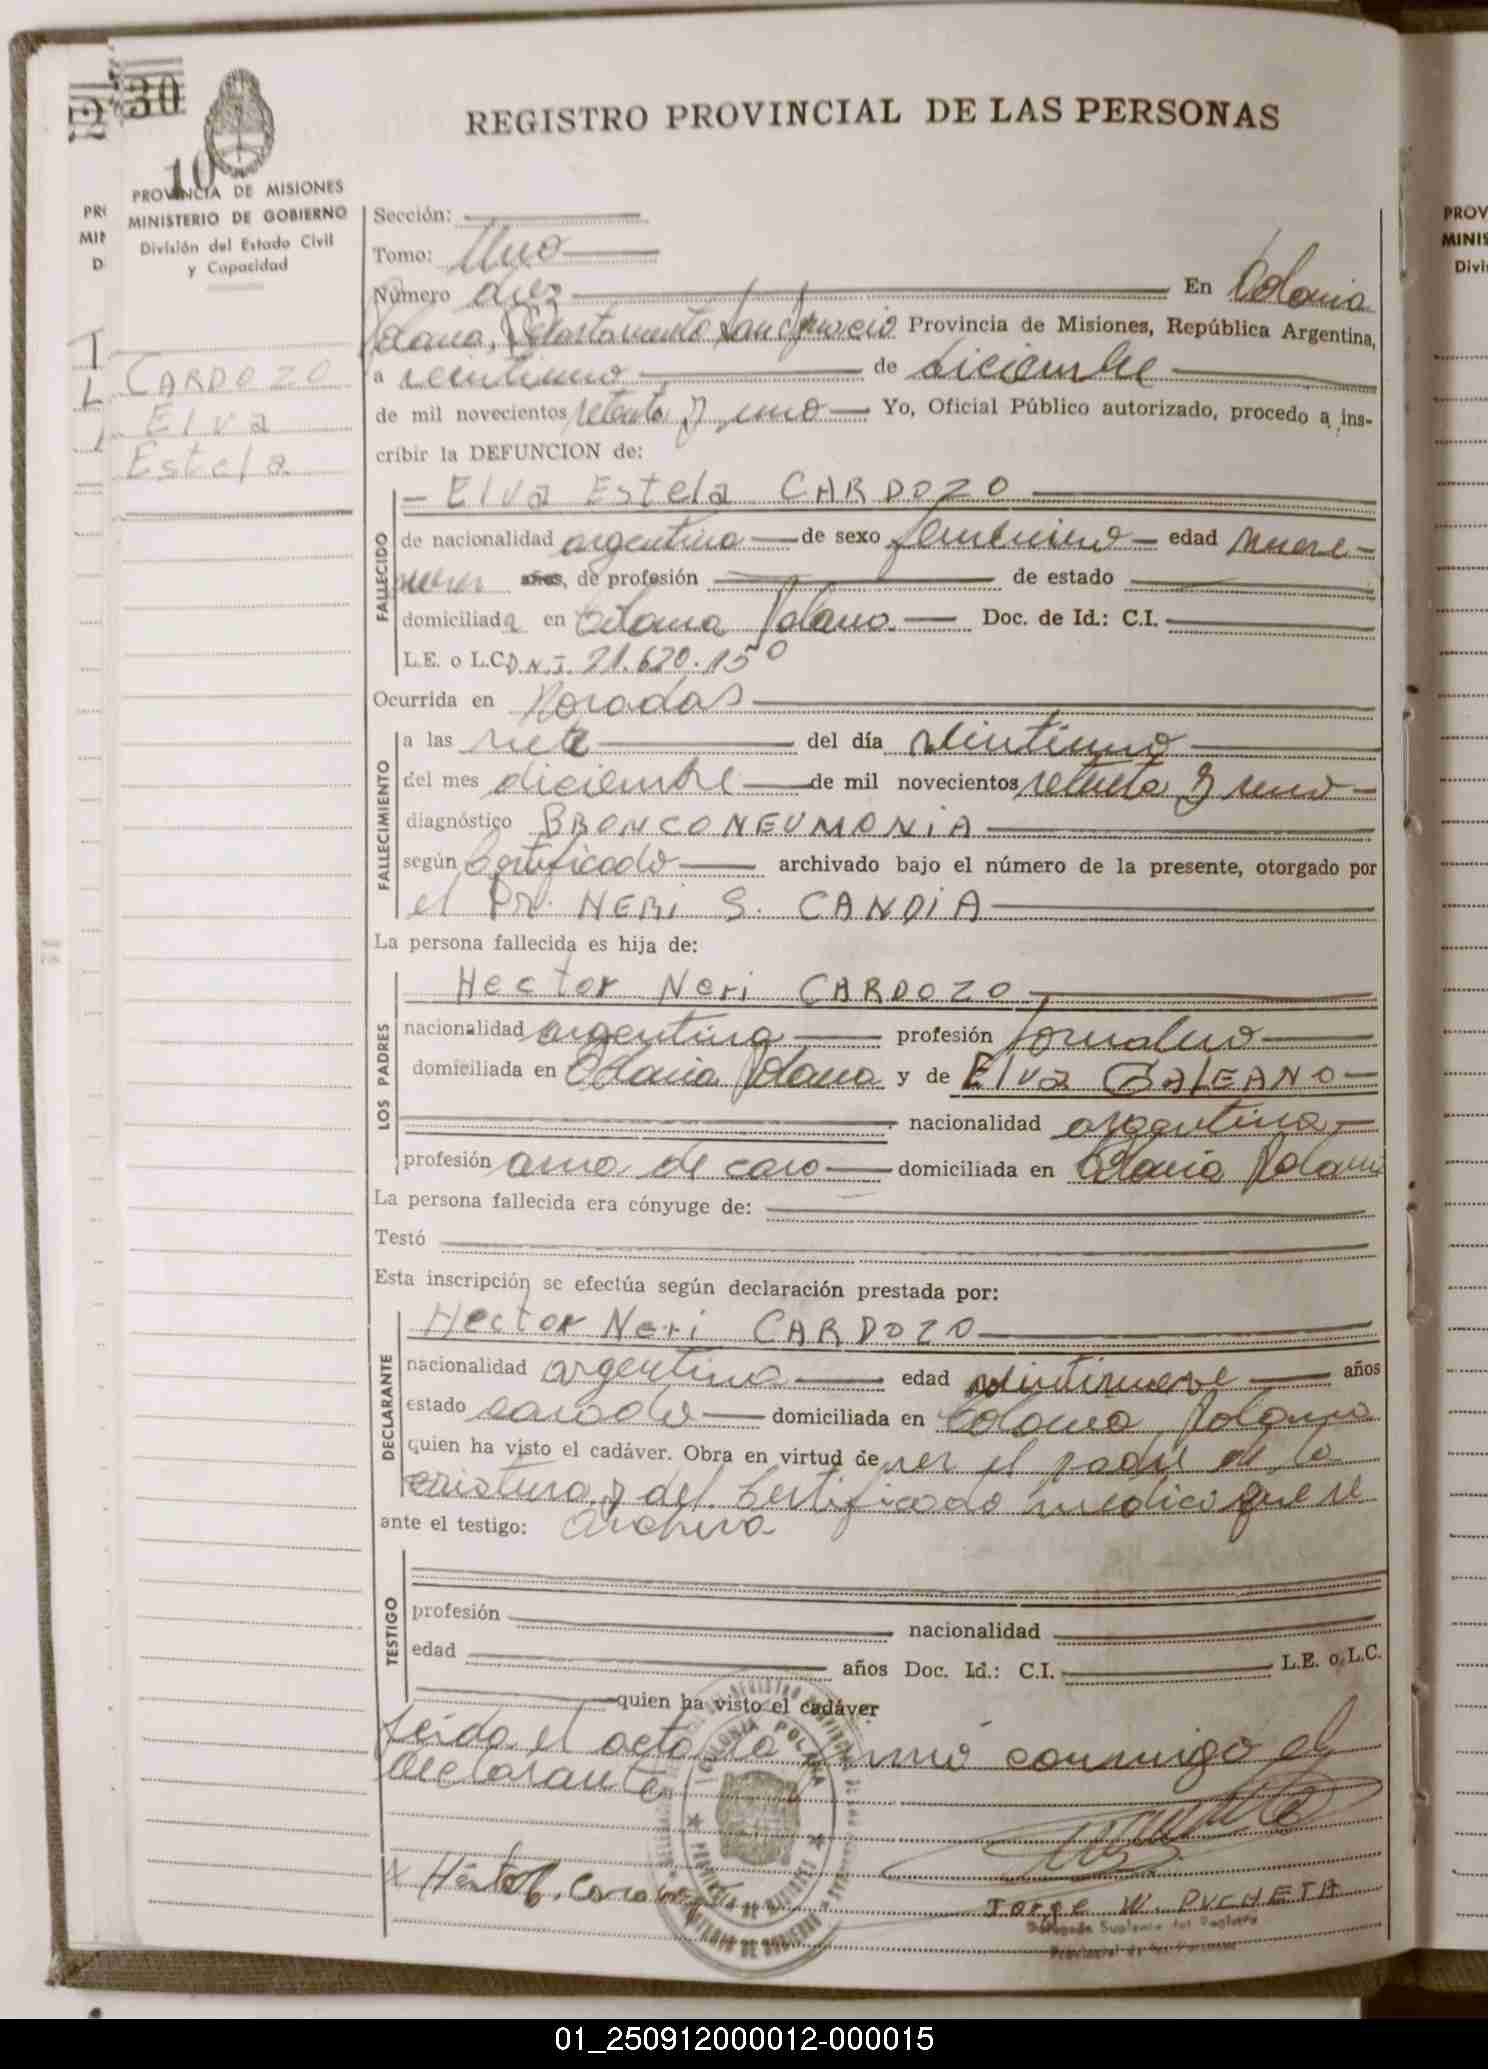 30
10
REGISTRO PROVINCIAL DE LAS PERSONAS
PROVINCIA DE MISIONES
MINISTERIO DE GOBIERNO
División del Estado Civil
y Capacidad
CARDOZO
Elva
Estela
Sección:
Tomo: Uno
Número diez En Colonia
Polana, Departamento San Ignacio Provincia de Misiones, República Argentina,
a veintiuno de diciembre
de mil novecientos setenta y uno Yo, Oficial Público autorizado, procedo a ins-
cribir la DEFUNCION de:
FALLECIDO
Elva Estela CARDOZO
de nacionalidad argentina de sexo femenino edad nueve
meses años, de profesión de estado
domiciliada en Colonia Polana Doc. de Id.: C.I.
L.E. o L.C. D.N.I. 21.620.150
Ocurrida en
FALLECIMIENTO
a las siete del día veintiuno
del mes diciembre de mil novecientos setenta y uno
diagnóstico BRONCONEUMONIA
según Certificado archivado bajo el número de la presente, otorgado por
el Dr. NERI S. CANDIA
La persona fallecida es hija de:
LOS PADRES
Hector Neri CARDOZO
nacionalidad argentina profesión Jornalero
domiciliada en Colonia Polana y de Elva GALEANO
nacionalidad argentina
profesión ama de casa domiciliada en Colonia Polana
La persona fallecida era cónyuge de:
Testó
Esta inscripción se efectúa según declaración prestada por:
DECLARANTE
Hector Neri CARDOZO
nacionalidad argentina edad veintinueve años
estado casado domiciliada en Colonia Polana
quien ha visto el cadáver. Obra en virtud de ser el padre de la
criatura y del Certificado medico que se
ante el testigo: archiva
TESTIGO
profesión nacionalidad
edad años Doc. Id.: C.I. L.E. o L.C.
quien ha visto el cadáver
Leída el acta la firmó conmigo el
declarante
COLONIA POLANA
PROVINCIA DE MISIONES
Jorge W. PUCHETA
Delegado Suplente del Registro
Provincial de las Personas
PROV
MINIS
Divi
01_250912000012-000015